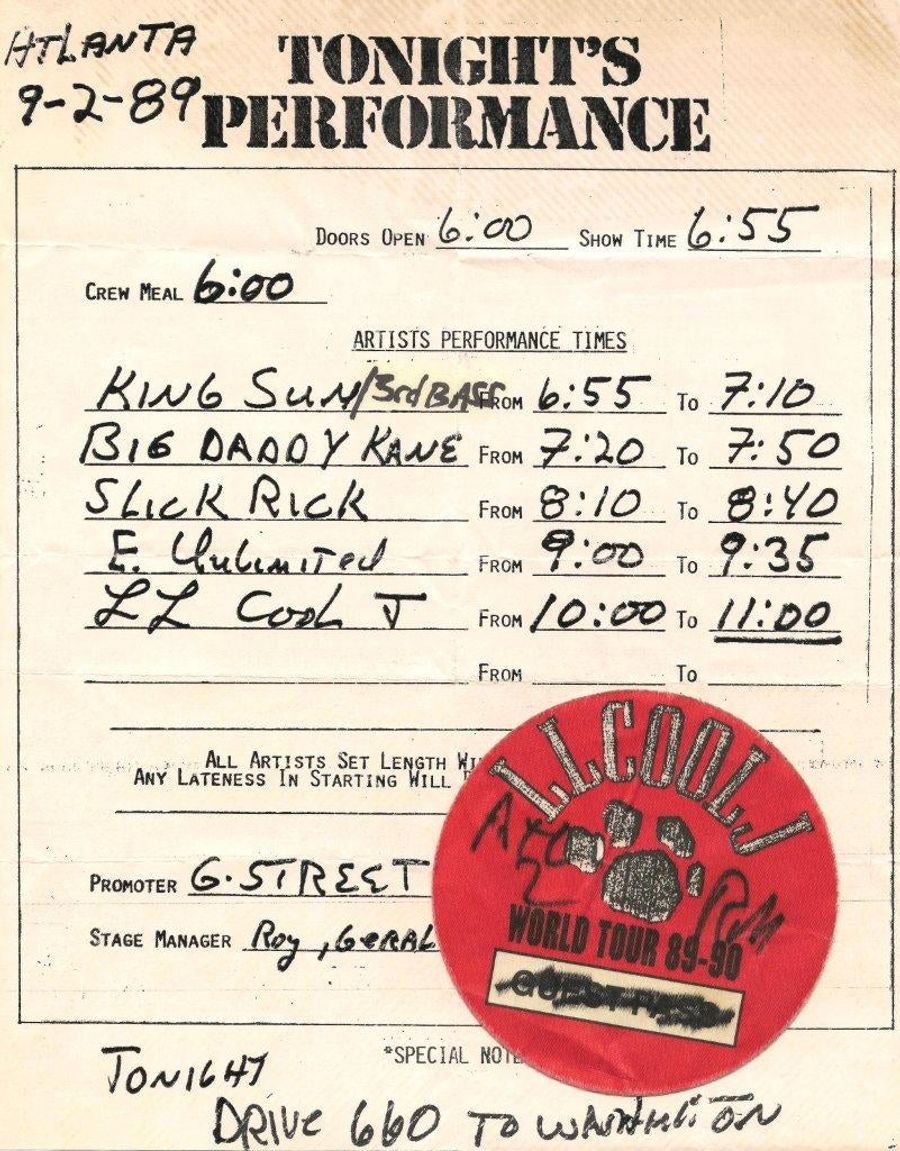 ATLANTA
9-2-89
TONIGHT'S
PERFORMANCE
DOORS OPEN 6:00 SHOW TIME 6:55
CREW MEAL 6:00
ARTISTS PERFORMANCE TIMES
KING SUN/3rd BASS FROM 6:55 TO 7:10
BIG DADDY KANE FROM 7:20 TO 7:50
SLICK RICK FROM 8:10 TO 8:40
E. Unlimited FROM 9:00 TO 9:35
LL Cool J FROM 10:00 TO 11:00
FROM TO
ALL ARTISTS SET LENGTH
ANY LATENESS IN STARTING WILL
PROMOTER G. STREET
STAGE MANAGER Roy, GERAL
LL COOL J
WORLD TOUR 89-90
GUEST PASS
*SPECIAL
TONIGHT
DRIVE 660 TO